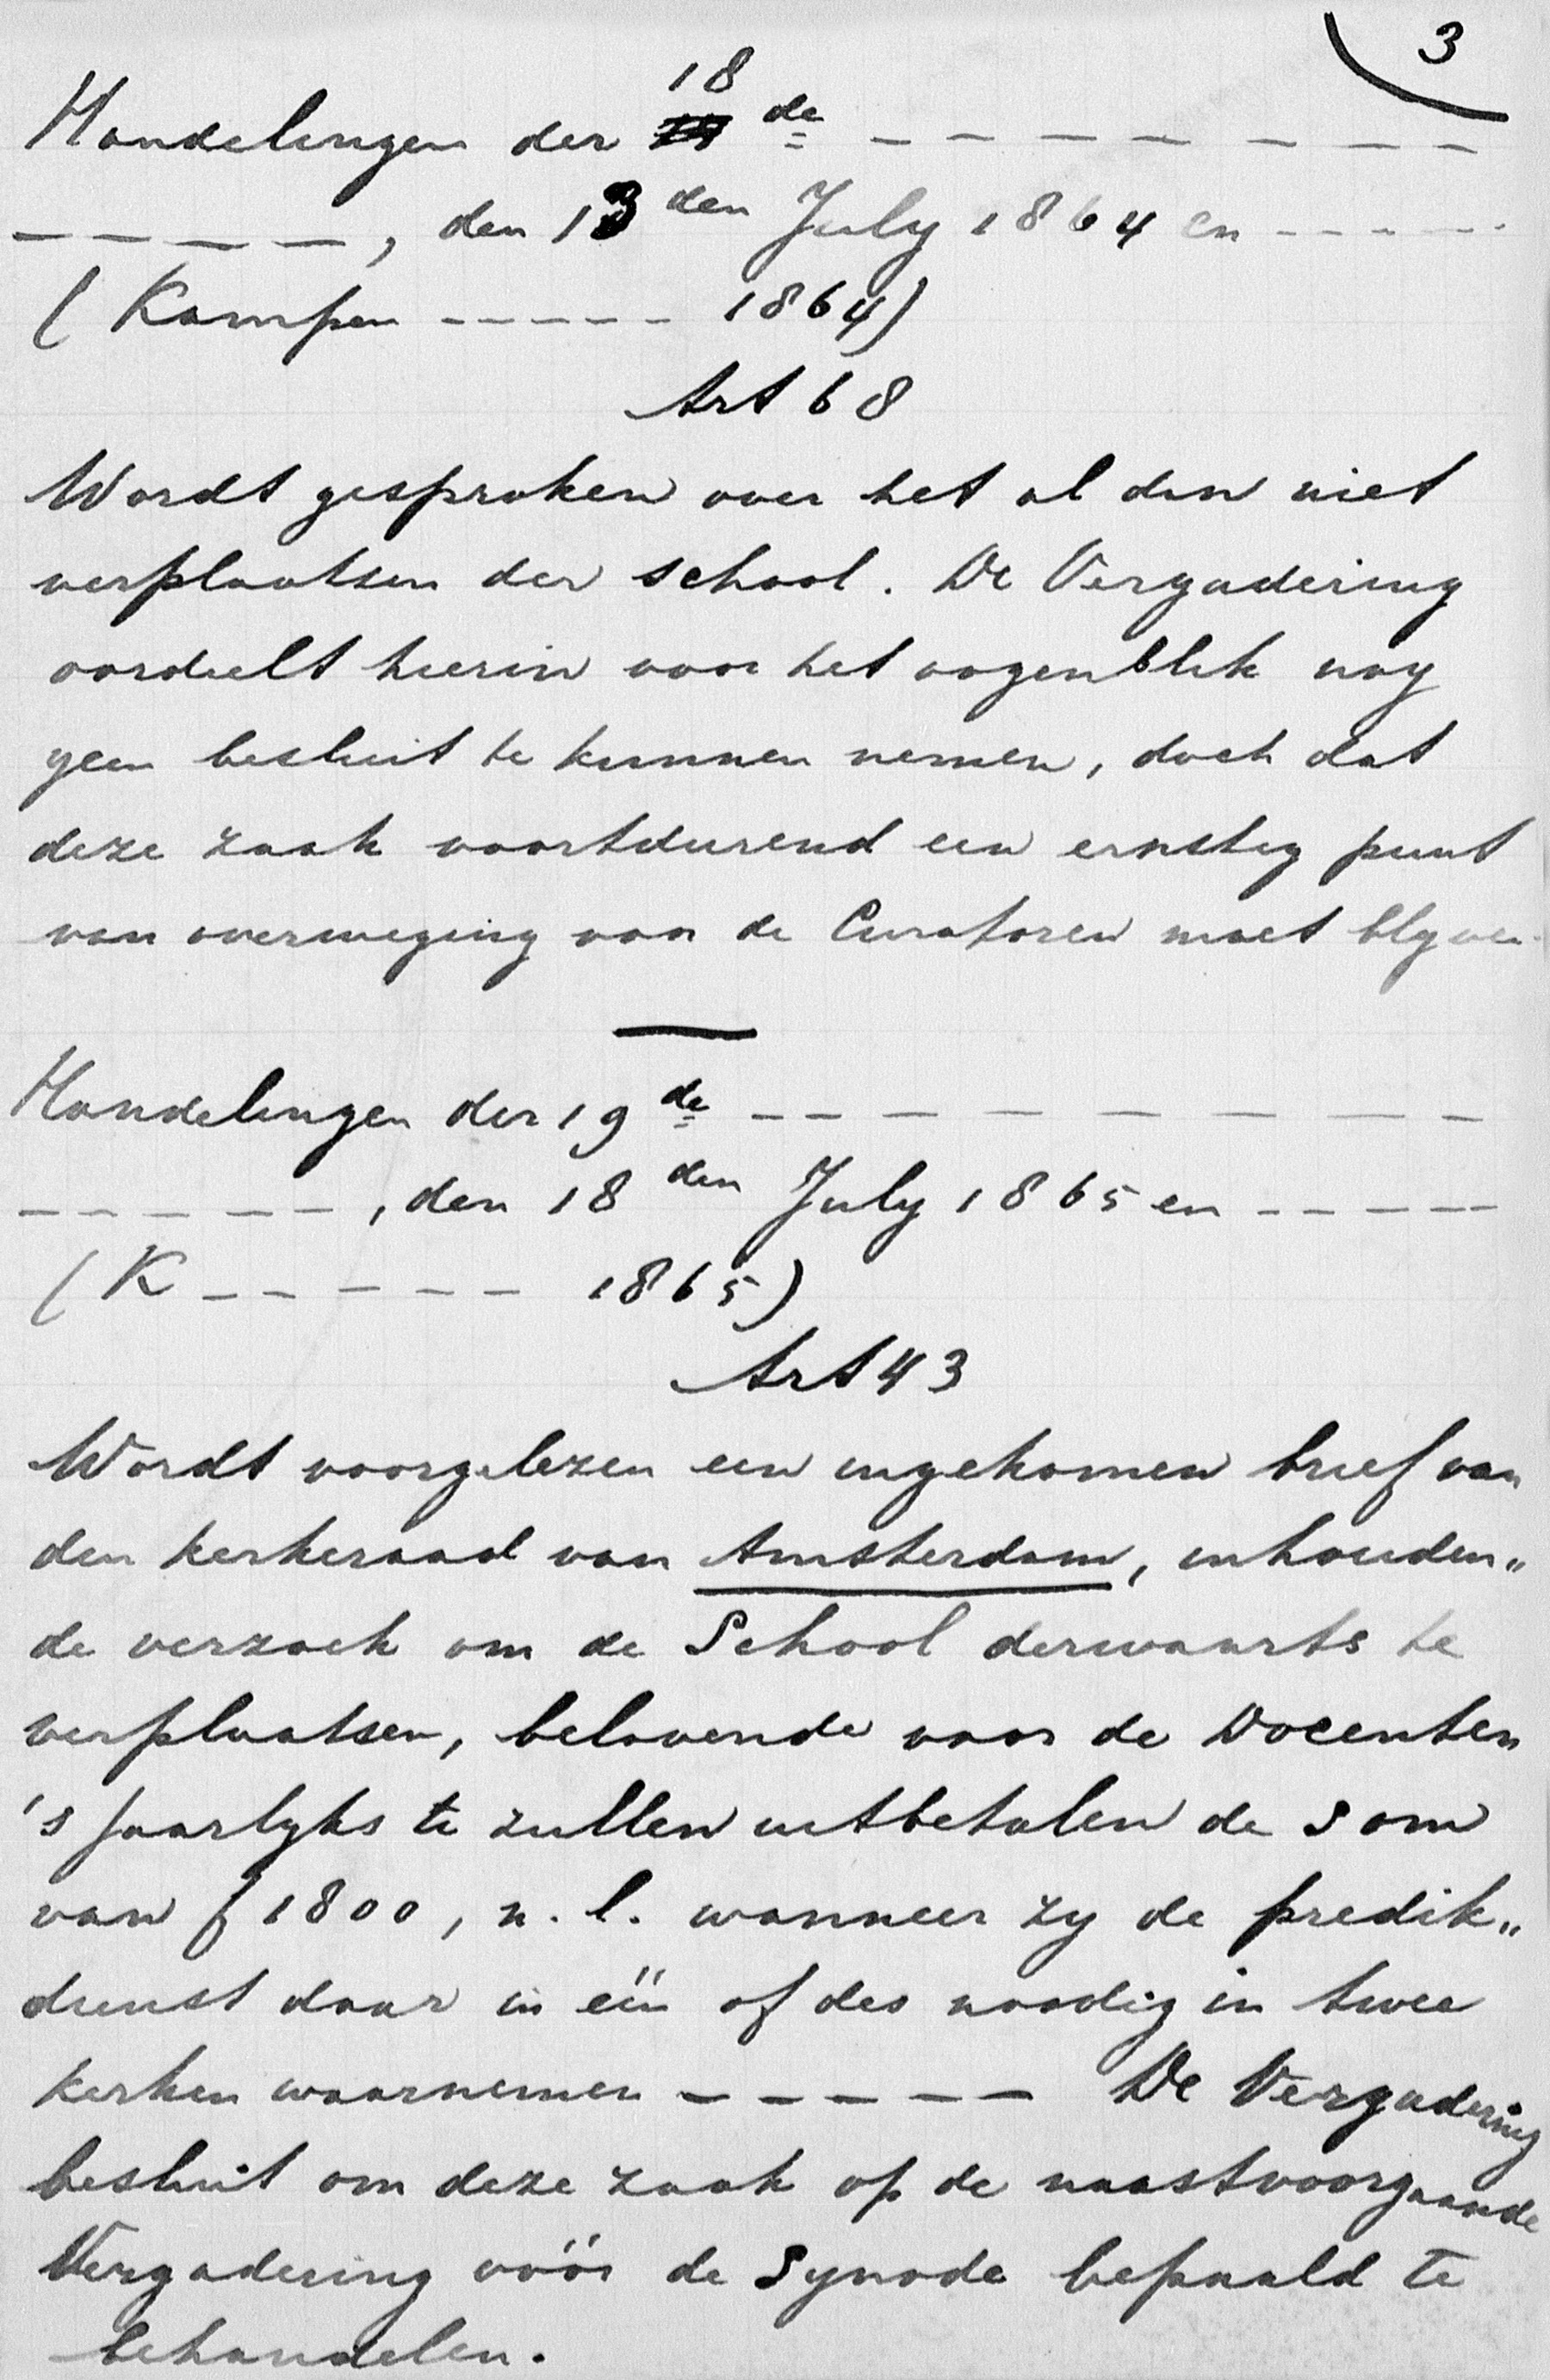 3
Handelingen der 18 de – – – – – – – –
– – – – –, den 13 den July 1864 en – – – – –
(Kampen – – – – – 1864)
Art 68
Wordt gesproken over het al dan niet
verplaatsen der school. De Vergadering
oordeelt hierin voor het oogenblik nog
geen besluit te kunnen nemen, doch dat
deze zaak voortdurend een ernstig punt
van overweging van de Curatoren moet blyven.
Handelingen der 19 de – – – – – – – –
– – – – – –, den 18 den July 1865 en – – – – –
(K – – – – – – 1865)
Art 43
Wordt voorgelezen een ingekomen brief van
den kerkeraad van Amsterdam, inhouden„
de verzoek om de School derwaarts te
verplaatsen, belovende voor de Docenten
's jaarlyks te zullen uitbetalen de som
van f 1800, n.l. wanneer zy de predik„
dienst daar in één of des noodig in twee
kerken waarnemen – – – – – De Vergadering
besluit om deze zaak op de naastvoorgaande
Vergadering vóór de Synode bepaald te
behandelen.